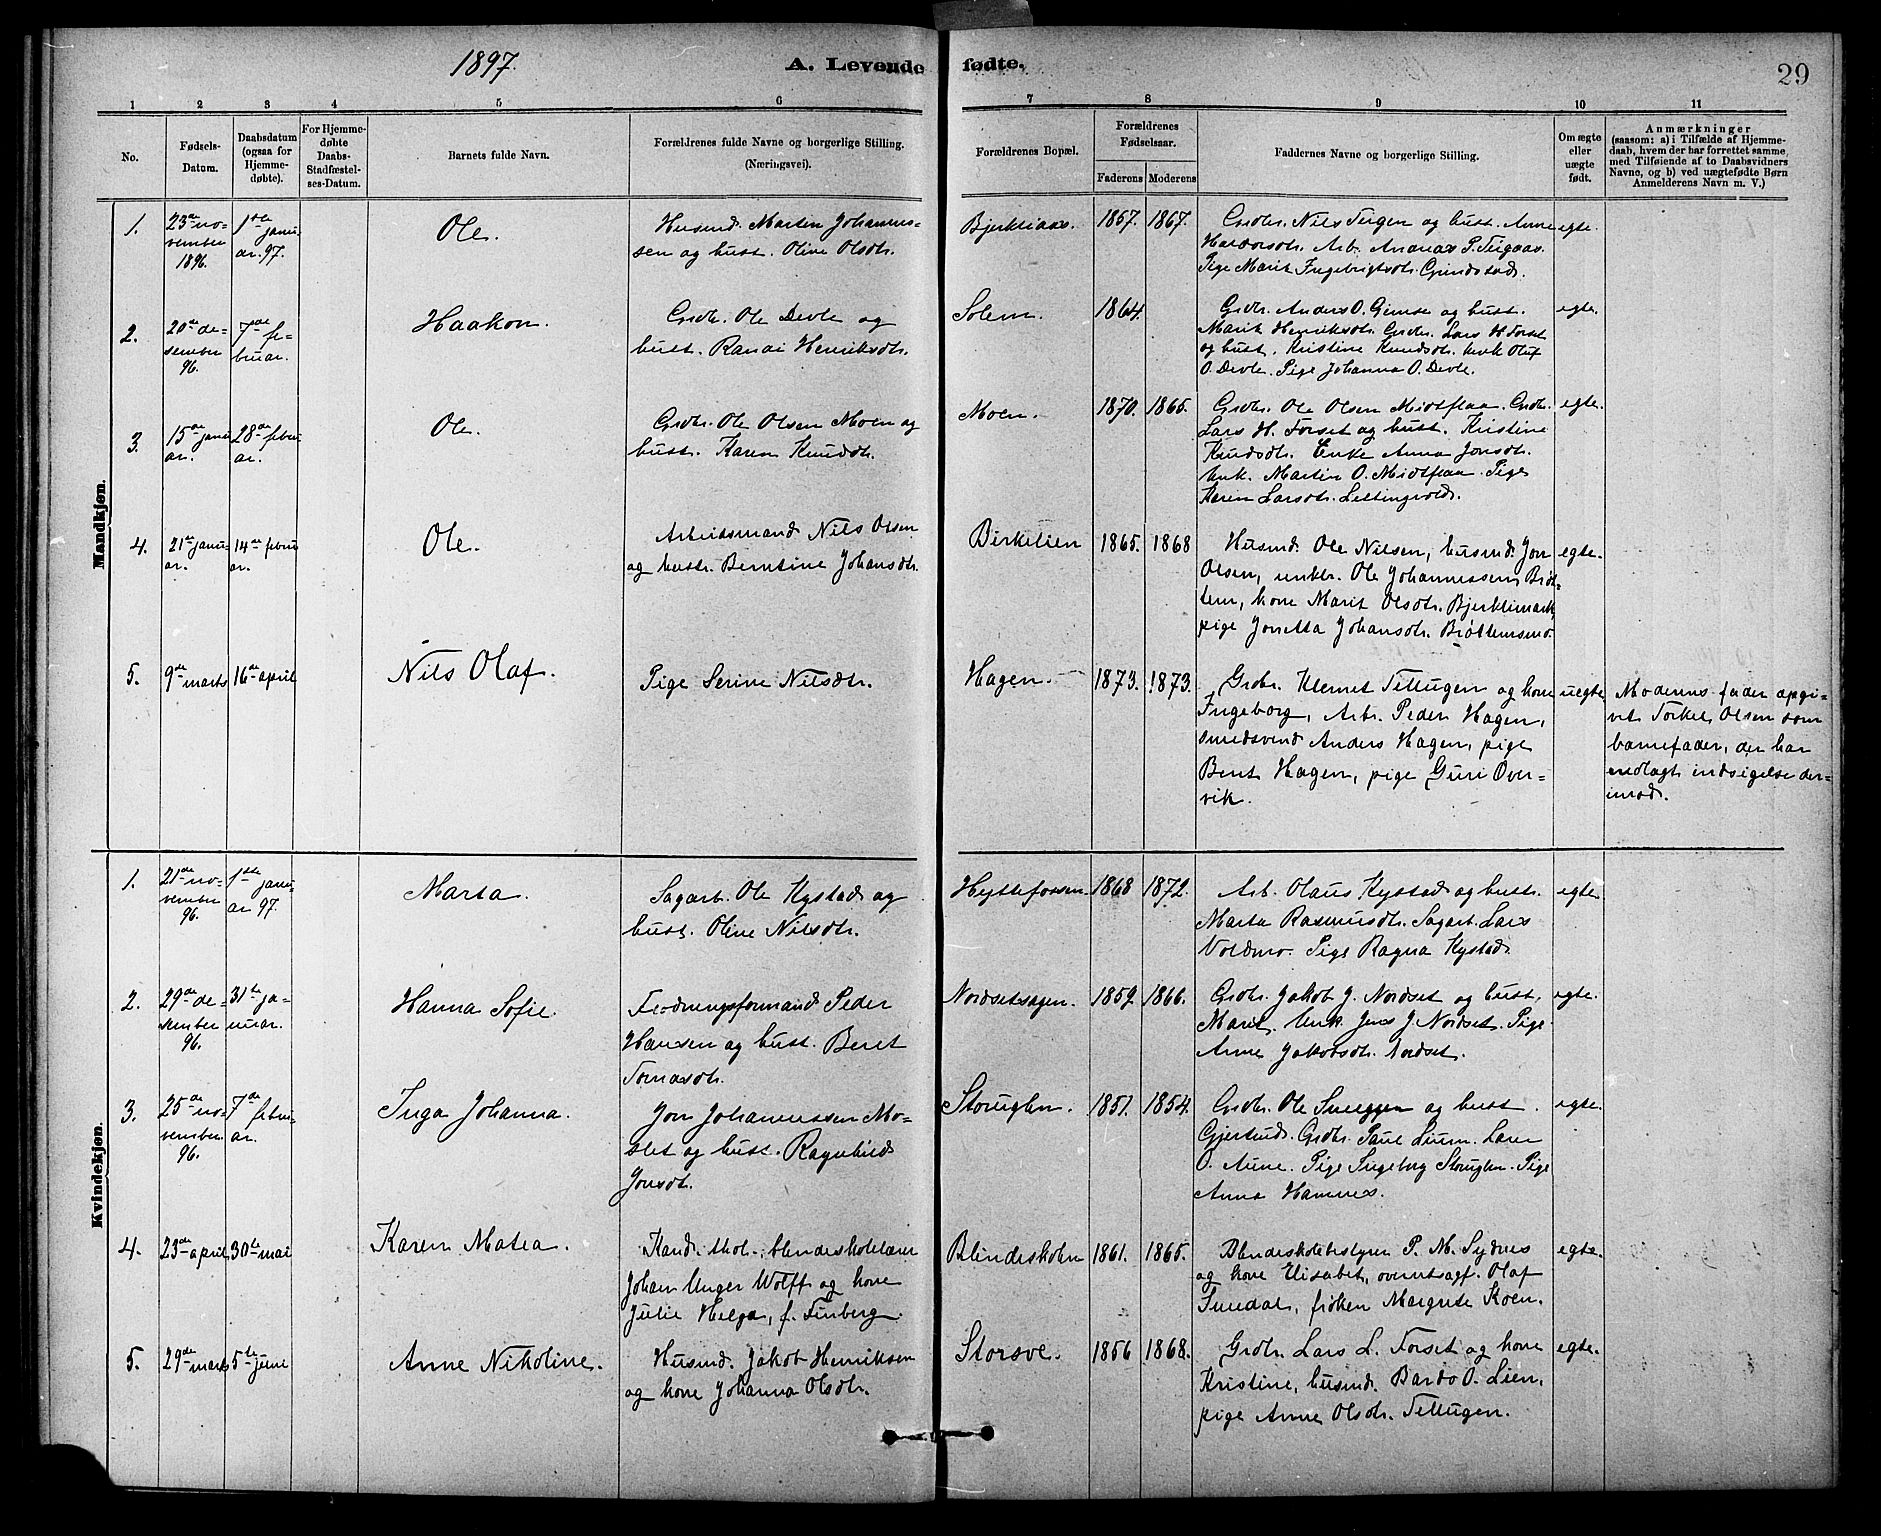 1897.
A. Levende fødte.
29
1 2 3 4 5 6 7 8 9 10 11
No.
Fødsels-
Datum.
Daabsdatum
(ogsaa for
Hjemme-
døbte).
For Hjemme-
døbte
Daabs-
Stadfæstel-
ses-Datum.
Barnets fulde Navn.
Forældrenes fulde Navne og borgerlige Stilling.
(Næringsvei).
Forældrenes Bopæl.
Forældrenes
Fødselsaar.
Faderens Moderens
Faddernes Navne og borgerlige Stilling.
Om ægte
eller
uægte
født.
Anmærkninger
(saasom: a) i Tilfælde af Hjemme-
daab, hvem der har forrettet samme,
med Tilføiende af to Daabsvidners
Navne, og b) ved uægtefødte Børn
Anmelderens Navn m. V.)
Mandkjøn.
1.
23de no-
vember
1896.
1ste janu-
ar. 97.
Ole.
Husmd. Martin Johannes-
sen og hust. Oline Olsdtr.
Bjerkliaas.
1867. 1867.
Grdbr. Nils Teigen og hust. Anne
Haldorsdtr. Arb. Ananias P. Teigaas.
Pige Marit Ingebrigtsdtr. Grindstad.
egte.
2.
20de de-
sember
96.
7de fe-
bruar.
Haakon.
Grdbr. Ole Devle og
hust. Ranai Henriksdtr.
Solem.
1864.
Grdbr. Anders O. Gimse og hust.
Marit Henriksdtr. Grdbr. Lars H. Forset
og hust. Kristine Knudsdtr. Unk. Oluf
O. Devle. Pige Johanna O. Devle.
egte.
3.
15de janu-
ar.
28de febru-
ar.
Ole.
Grdbr. Ole Olsen Moen og
hust. Karen Knudsdtr.
Moen.
1870. 1865.
Grdbr. Ole Olsen Midtflaa. Grdbr.
Lars H. Forset og hust. Kristine
Knudsdtr. Enke Anna Jonsdtr.
Unk. Martin O. Midtflaa. Pige
Karen Larsdtr. Lettingvold.
egte.
4.
21de janu-
ar.
14de febru-
ar.
Ole.
Arbeidsmand Nils Olsen
og hustr. Berntine Johansdtr.
Birkelien
1865. 1868
Husmd. Ole Nilsen, husmd. Jon
Olsen, unkbr. Ole Johannessen Brøt-
tem, kone Marit Olsdtr. Bjerklimark,
pige Jonetta Johansdtr. Brøttemsmo.
egte.
5.
9de marts
16de april
Nils Olaf.
Pige Serine Nilsdtr.
Hagen.
1873. 1873.
Grdbr. Klemet Tettugen og kone
Ingeborg, Arb. Peder Hagen,
smedsvend Anders Hagen, pige
Berit Hagen, pige Guri Over-
vik.
uegte.
Moderens fader opgi-
vet Torkel Olsen som
barnefader, der har
nedlagt indsigelse der-
imod.
Kvindekjøn.
1.
21de no-
vember
96.
1ste janu-
ar 97.
Marta.
Sagarb. Ole Kystad og
hust. Oline Nilsdtr.
Hyttefossen.
1868 1872.
Arb. Olaus Kystad og hust.
Marta Rasmusdtr. Sagarb. Lars
Voldmo. Pige Ragna Kystad.
egte.
2.
29de de-
sember
96.
31te ja-
nuar.
Hanna Sofie.
Flødningsformand Peder
Hansen og hust. Beret
Tomasdtr.
Nordsetsagen.
1859. 1866.
Grdbr. Jakob J. Nordset og hust.
Marit. Unk. Jens J. Nordset. Pige
Anne Jakobsdtr. Nordset.
egte.
3.
25de no-
vember
96.
7de febru-
ar.
Inga Johanna.
Jon Johannessen Mo-
slet og hust. Ragnhild
Jonsdtr.
Storuglen.
1851. 1854.
Grdbr. Ole Sneggen og hust.
Gjertrud. Grdbr. Paul Lium. Lærer
O. Aune. Pige Ingeborg Storuglen. Pige
Anna Hammes.
egte.
4.
23de april
30te mai
Karen Matea.
Kand. theol., blindeskolelærer
Johan Unger Wolff og kone
Julie Helga, f. Finberg.
Blindeskolen
1861. 1865.
Blindeskolebestyrer P. M. Sydnes
og kone Elisabet, overretssagf. Olaf
Smedal, frøken Margrete Koen.
egte.
5.
29de marts
5te june
Anne Nikoline.
Husmd. Jakob Henriksen
og kone Johanna Olsdtr.
Storsve.
1856 1868.
Grdbr. Lars L. Forset og kone
Kristine, husmd. Bardo O. Lien,
pige Anne Olsdtr. Tettugen.
egte.